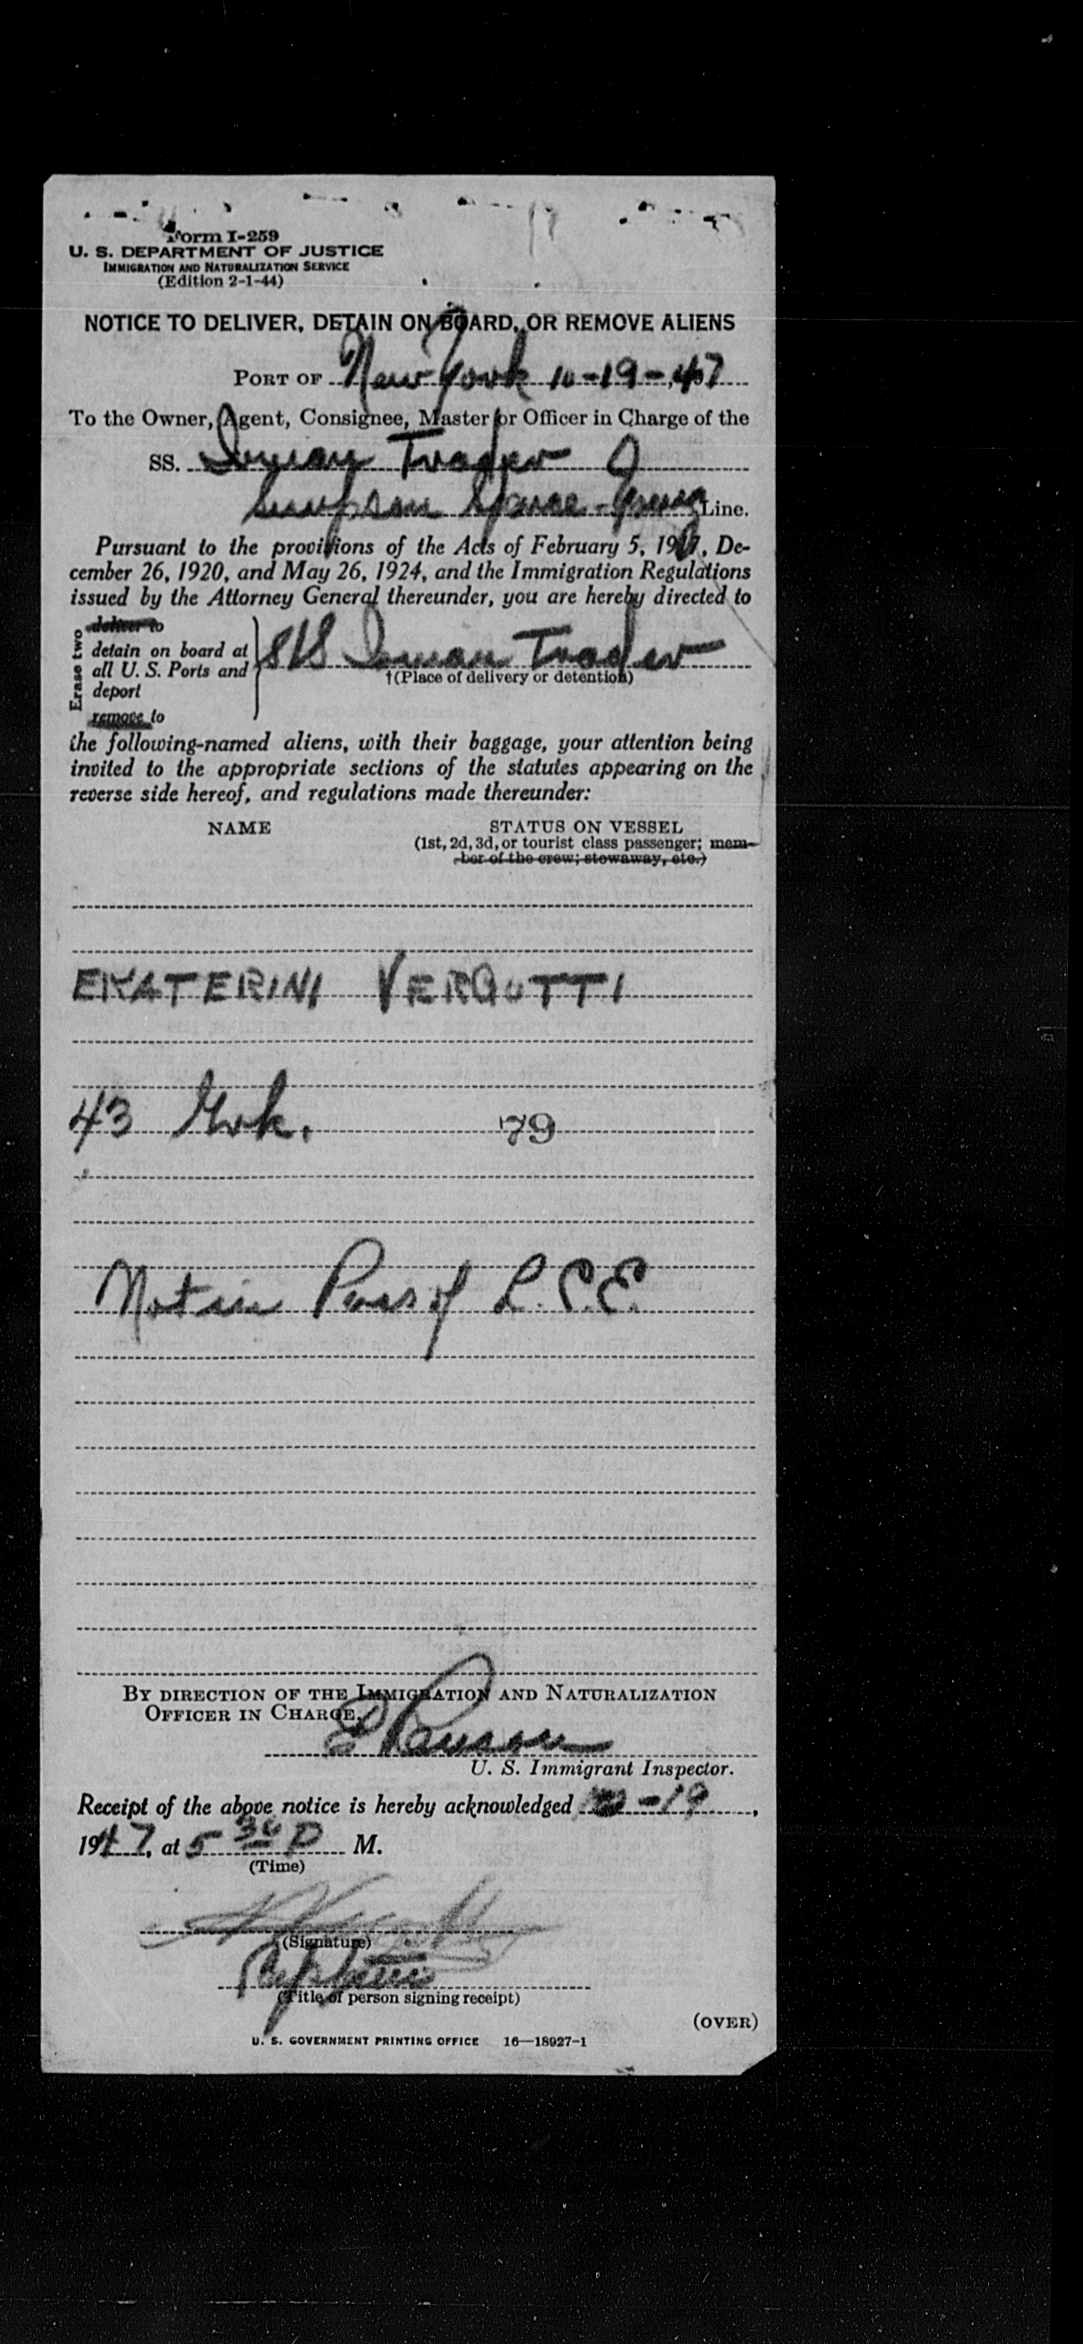 Form I-259
U. S. DEPARTMENT OF JUSTICE
IMMIGRATION AND NATURALIZATION SERVICE
(Edition 2-1-44)
NOTICE TO DELIVER, DETAIN ON BOARD, OR REMOVE ALIENS
PORT OF New York 10-19-, 47
To the Owner, Agent, Consignee, Master or Officer in Charge of the
SS. Trader
Simpson Spence - Young Line.
Pursuant to the provisions of the Acts of February 5, 1917, De-
cember 26, 1920, and May 26, 1924, and the Immigration Regulations
issued by the Attorney General thereunder, you are hereby directed to
Erase two
deliver to
detain on board at
all U. S. Ports and
deport
remove to
S/S Trader
†(Place of delivery or detention)
the following-named aliens, with their baggage, your attention being
invited to the appropriate sections of the statutes appearing on the
reverse side hereof, and regulations made thereunder:
NAME STATUS ON VESSEL
(1st, 2d, 3d, or tourist class passenger; mem-
ber of the crew; stowaway, etc.)
EKATERINI VERGOTTI
43 Grk. 79
Not in Poss of L.C.E.
BY DIRECTION OF THE IMMIGRATION AND NATURALIZATION
OFFICER IN CHARGE.
U. S. Immigrant Inspector.
Receipt of the above notice is hereby acknowledged 10-19,
1947, at 5 30 P M.
(Time)
(Signature)
(Title of person signing receipt)
(OVER)
U. S. GOVERNMENT PRINTING OFFICE 16—18927-1